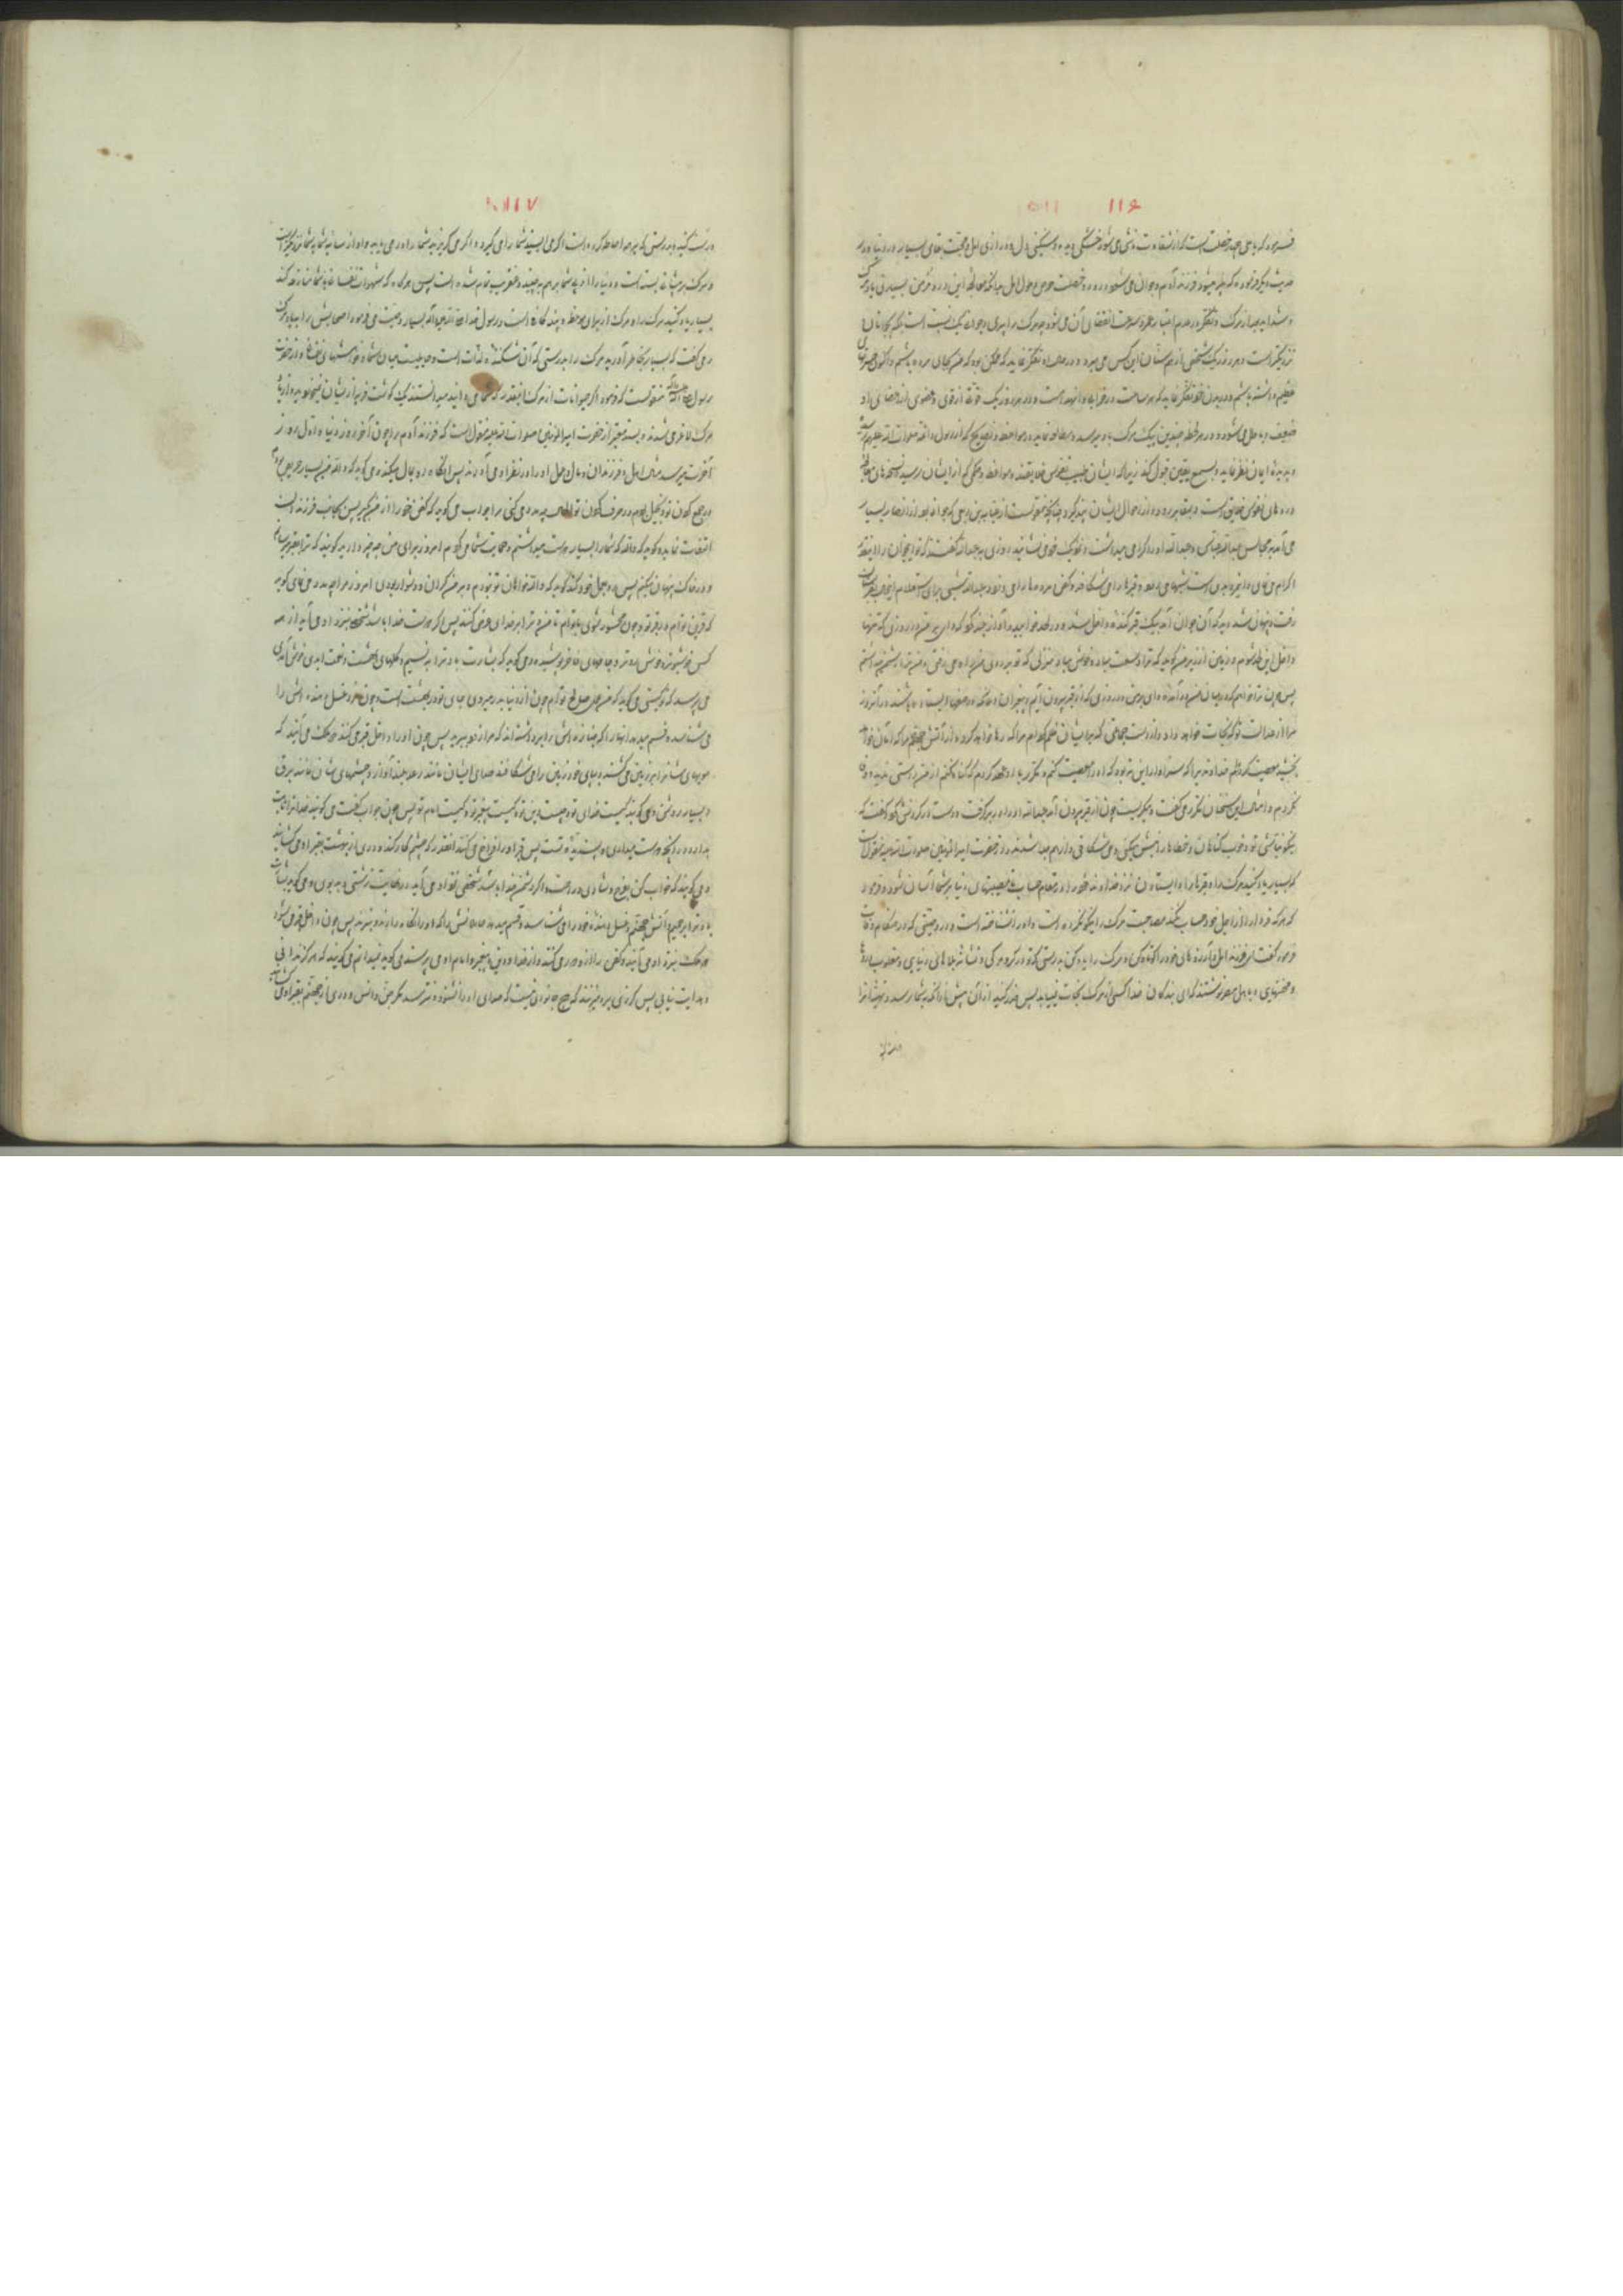 ۱۱۶
فرمود که یا علی چهار خصلت است که از شقاوت ناشی می‌شود خشکی دیده و سنگینی دل و درازی امل و محبت بقای بسیار در دنیا و در
حدیث دیگر فرمود که پیر میشود فرزند آدم و جوان می‌شود در او دو خصلت حرص و طول امل
و شداید بعد از مرگ و تفکر در عدم اعتبار عمر و سرعت انقضای آن می‌شود چه مرگ را پیری و جوانی یک نسبت است بلکه بجوانان
نزدیکتر است و هر روز یک شخصی از همسنان این کس می‌میرد
عظیم داشته باشم و در بدن خود تفکر نماید که هر ساعت در خرابی و انهدام است و در هر روز یک قوت از قوی و عضوی از اعضای او
ضعیف و باطل می‌شود و در هر لحظه چندین پیک مرگ باو میرسد و مطالعه نماید در مواعظ و نصایح که از رسول و ائمه صلوات الله علیهم رسیده
و بدیده ایمان نظر نماید و بسمع یقین قبول کند زیرا که ایشان طبیب نفوس خلایقند و مواعظ و حکمی که از ایشان رسیده نسخه‌های معالجه
دردهای نفوس خلایق است و بمقابر رود و از احوال ایشان پند گیرد چنانچه منقولست از
می‌آمد بمجالس عبدالله عباس و عبدالله او را گرامی میداشت و نزدیک خود می‌نشانید روزی بعبدالله گفتند که تو این جوان را اینقدر
اکرام می‌نمائی و او مرد بدی است شبها می‌رود و قبرها را می‌شکافد و کفن مرده‌ها را می‌دزدد عبدالله شبی برای استعلام این حال بقبرستان
رفت و پنهان شد دید که آن جوان آمد بیک قبر کنده داخل شد و در لحد خوابید و آواز بلند کرد که وای بر من در روزی که تنها
داخل این لحد شوم و زمین از زیر من گوید که ترا وسعت مباد و خوش مباد منزلی که تو بر روی من راه می‌رفتی و من ترا دشمن میداشتم
پس چون ترا خواهم که در میان من درآمده وای بر من در روزی که از قبر بیرون آیم و پیغمبران و ملائکه در صفها ایستاده باشند در آنروز
مرا از عدالت تو که نجات خواهد داد و از دست جماعتی که بر ایشان ظلم کرده‌ام مرا که رها خواهد کرد و از آتش جهنم مرا که امان خواهد
بخشید معصیت کردم خداوندی را که سزاوار این نبود که او را معصیت کنم و مکرر با او عهد کردم که گناه نکنم از من راستی ندید و وفا
نکردم و امثال این سخنان مکرر می‌گفت و میگریست چون از قبر بیرون آمد عبدالله او را در بر گرفت و دست در گردنش کرد و گفت که
نیکو نباشی تو و خوب گناهان و خطاها را نبش میکنی و می‌شکافی و از هم جدا شدند و از حضرت امیرالمؤمنین صلوات الله علیه منقولست
که بسیار یاد کنید مرگ را و قبرها را و ایستادن نزد خداوند خود را در مقام حساب تا مصیبتهای دنیا بر شما آسان شود و فرمود
که هر که فردا را از اجل خود حساب کند مصاحبت مرگ را نیکو نکرده است و او را نشناخته است و در وصیتی که در هنگام وفات
فرمود گفت ای فرزند امل و آرزوهای خود را کوتاه کن و مرگ را یاد کن بدرستی که تو در گرو مرگی و نشانه بلاهای دنیایی و مغلوب دردها
و محنتهایی و باهل مصر نوشتند که ای بندگان خدا کسی از مرگ نجات نمییابد پس حذر کنید از آن پیش از آنکه بشما رسد و تهیه‌اش را
۱۱۷
درست کنید بدرستی که بر همه احاطه کرده است اگر می‌ایستید شما را می‌گیرد و اگر می‌گریزید شما را در می‌یابد و او از سایه شما بشما نزدیکتر است
و مرگ بر پیشانی بسته است و دنیا را از پی شما بر هم می‌پیچند
بسیار یاد کنید مرگ را و مرگ از برای موعظه و پند کافیست و رسول خدا صلی الله علیه و آله بسیار وصیت می‌فرمود اصحابش را بیاد مرگ
و می‌گفت که بسیار بخاطر آورید مرگ را بدرستی که آن شکننده لذتهاست و حایلست میان شما و خواهشهای نفسانی و از حضرت
رسول صلی الله علیه و آله منقولست که فرمود اگر حیوانات از مرگ اینقدر که شما می‌دانید میدانستند یک گوشت فربه از ایشان نمیخوردید
مرگ لاغر می‌شدند و بسند معتبر از حضرت امیرالمؤمنین صلوات الله علیه منقول است که فرزند آدم را چون آخر روز دنیا و اول روز
آخرت میرسد مثال اهل و فرزندان و مال و عمل او را در نظر او می‌آورند پس نگاه رو بمال میکند و می‌گوید که والله من بسیار حریص بودم
در جمع کردن تو و بخیل بودم در صرف کردن تو الحال چه مدد می‌کنی مرا جواب می‌گوید که کفن خود را از من بگیر پس بجانب فرزندانش
التفات نماید و گوید که والله که شما را بسیار دوست میداشتم و حمایت شما می‌کردم امروز برای من چه چیز دارید گویند که ترا بقبر میرسانیم
و در خاک پنهان میکنیم پس رو بعمل خود کند گوید که والله خواهان تو نبودم و بر من گران و دشوار بودی امروز مرا چه مدد می‌نمائی گوید
که قرین توام در قبر تو و چون محشور شوی با توام تا من و ترا بر خدا عرض کنند پس اگر دوست خدا باشد شخصی بنزد او می‌آید از همه
کس خوشبوتر و خوش‌روتر و جامهای فاخر پوشیده و می‌گوید که بشارت باد ترا به نسیم و گلهای بهشت و نعمت ابدی خوش آمدی
می‌پرسد که تو کیستی می‌گوید که من عمل صالح توام چون از دنیا بدر میروی جای تو در بهشت است و چون مرد غسل دهنده‌اش را
می‌شناسد و قسم میدهد آنها را که جنازه‌اش را برداشته‌اند که مرا زود ببرید پس چون او را داخل قبر می‌کنند دو ملک می‌آیند که
مویهای ایشان بر زمین می‌کشند و بپای خود زمین را می‌شکافند صدای ایشان مانند رعد بلند آواز و چشمهای ایشان مانند برق
و بسیار روشن و می‌گویند کیست خدای تو و چیست دین تو و کیست پیغمبر تو و کیست امام تو پس چون جواب گفت می‌گویند خدا ترا ثابت
بدارد در آنچه دوست میداری و پسندیده تست پس قبر او را فراخ می‌کنند آنقدر که چشم کار کند و دری از بهشت بقبر او می‌گشایند
و می‌گویند که خواب کن بفرح و شادی و راحت و اگر دشمن خدا باشد شخصی نزد او می‌آید در نهایت زشتی و بدبویی و می‌گوید بشارت
باد ترا بر حمیم و آتش جهنم و غسل دهنده خود را می‌شناسد و قسم میدهد حاملانش را که او را نگاه دارند و نبرند پس چون داخل قبر می‌شود
دو ملک بنزد او می‌آیند و کفن را از او دور می‌کنند و از خدا و دین و پیغمبر و امام او می‌پرسند می‌گوید نمیدانم می‌گویند که هرگز ندانی
و هدایت نیابی پس گرزی بر او میزنند که هیچ جانوری نیست که صدای او را نشنود و نترسد مگر جن و انس و دری از جهنم بقبر او می‌گشایند